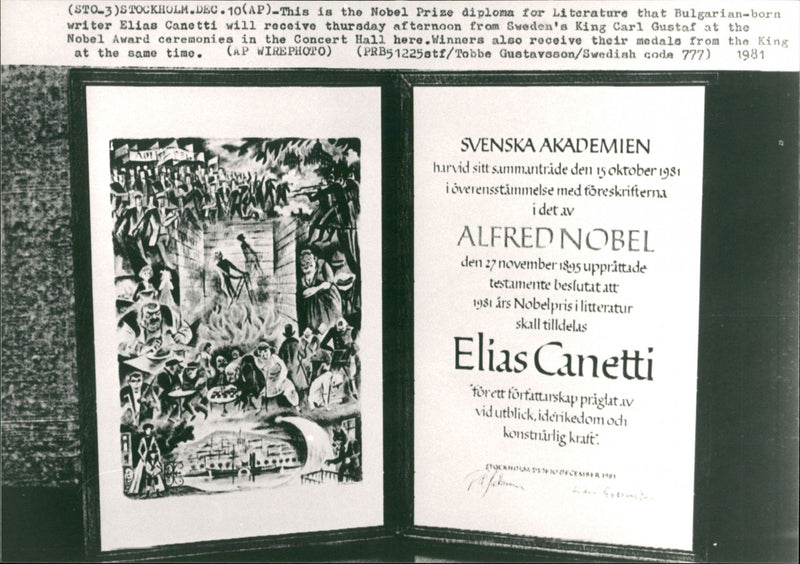 (STO_3)STOCKHOLM.DEC.10(AP)-This is the Nobel Prize diploma for Literature that Bulgarian-born
writer Elias Canetti will receive thursday afternoon from Sweden's King Carl Gustaf at the
Nobel Award ceremonies in the Concert Hall here.Winners also receive their medals from the King
at the same time. (AP WIREPHOTO) (PRB51225stf/Tobbe Gustavsson/Swedish code 777) 1981
SVENSKA AKADEMIEN
har vid sitt sammanträde den 15 oktober 1981
i överensstämmelse med föreskrifterna
i det av
ALFRED NOBEL
den 27 november 1895 upprättade
testamente beslutat att
1981 års Nobelpris i litteratur
skall tilldelas
Elias Canetti
"för ett författarskap präglat av
vid utblick, idérikedom och
konstnärlig kraft".
STOCKHOLM DEN 10 DECEMBER 1981